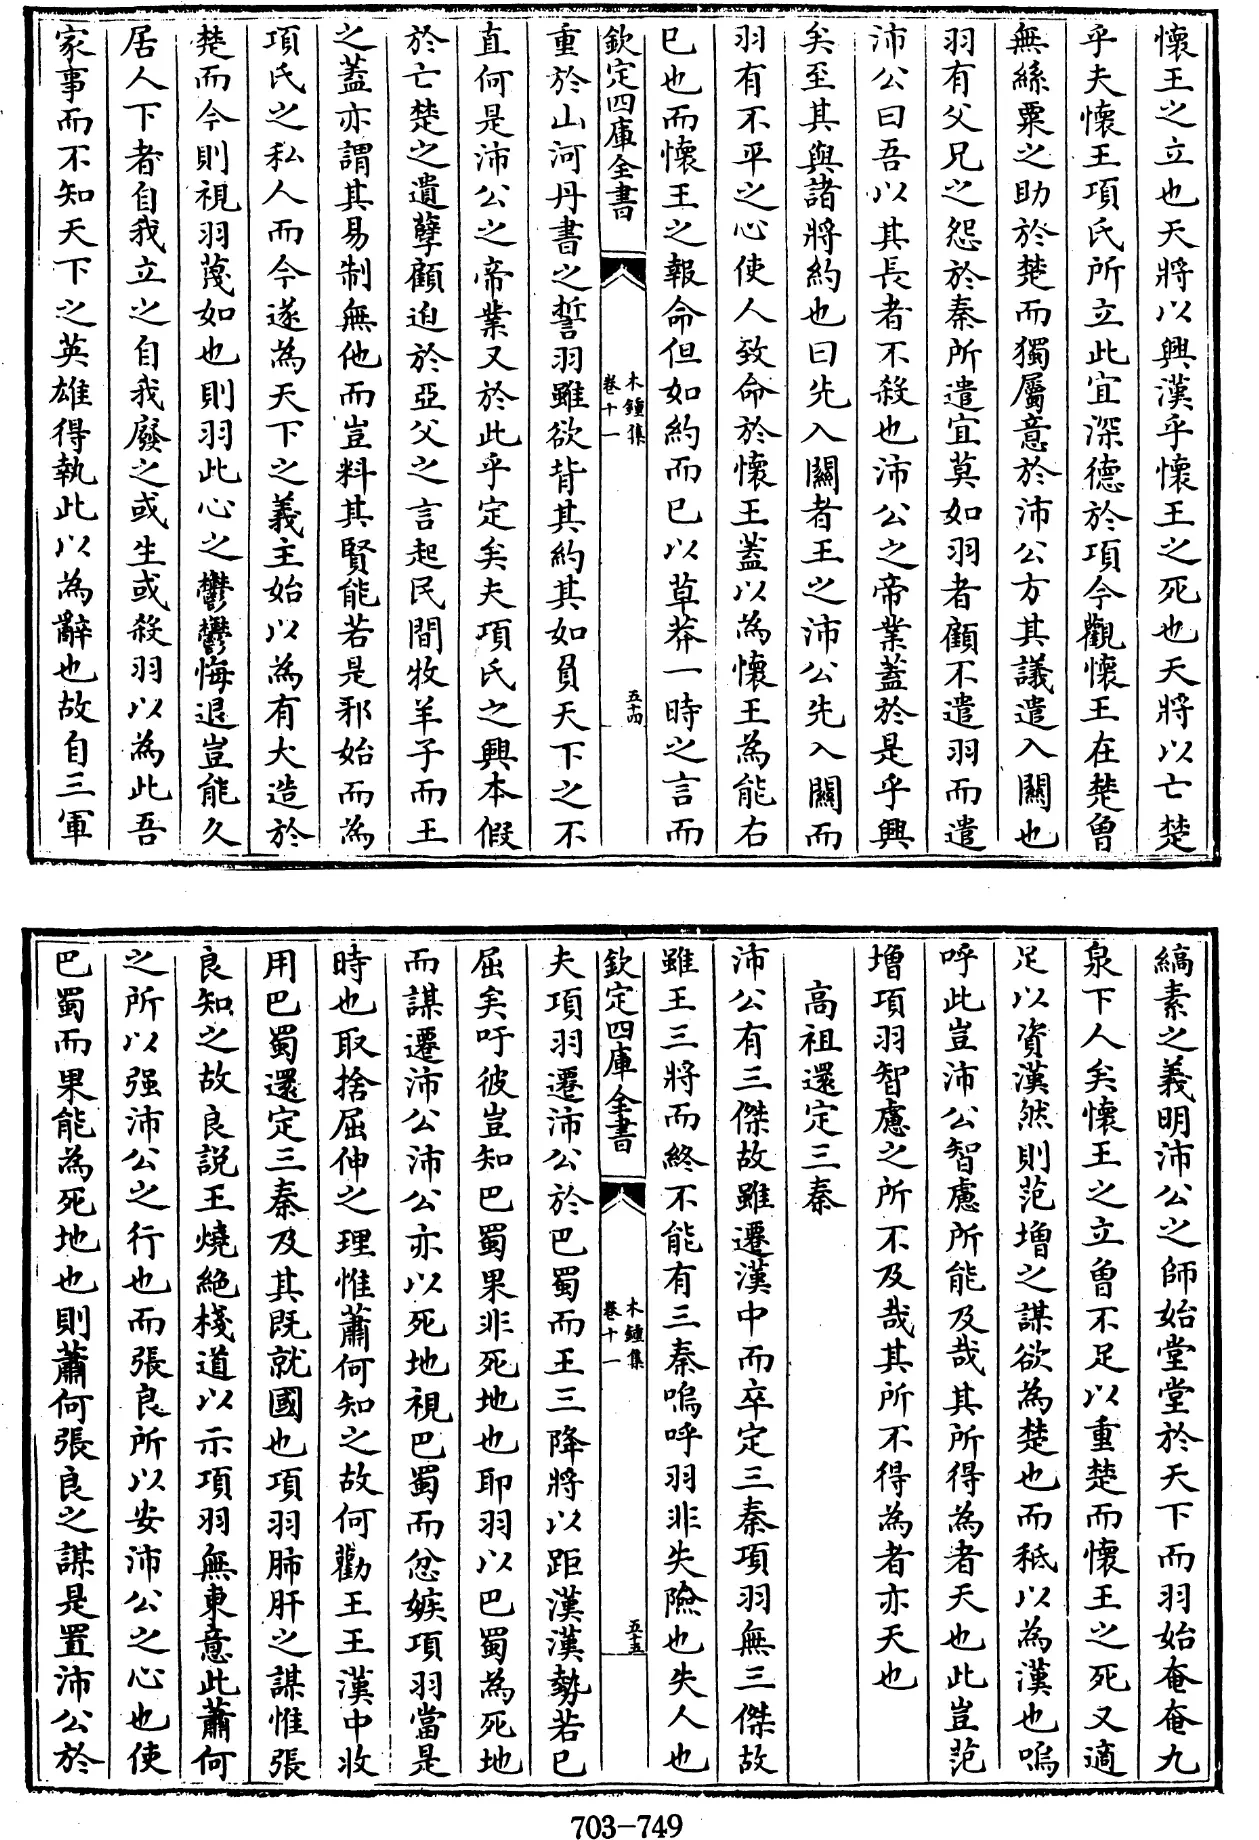 懷王之立也天將以興漢乎懷王之死也天將以亡楚
乎夫懷王項氏所立此宜深德於項今觀懷王在楚曾
無絲粟之助於楚而獨屬意於沛公方其議遣入關也
羽有父兄之怨於秦所遣宜莫如羽者顧不遣羽而遣
沛公曰吾以其長者不殺也沛公之帝業蓋於是乎興
矣至其與諸將約也曰先入關者王之沛公先入關而
羽有不平之心使人致命於懷王蓋以為懷王為能右
已也而懷王之報命但如約而已以草莽一時之言而
欽定四庫全書
木鍾集
卷十一
五十四
重於山河丹書之誓羽雖欲背其約其如負天下之不
直何是沛公之帝業又於此乎定矣夫項氏之興本假
於亡楚之遺孽顧迫於亞父之言起民間牧羊子而王
之蓋亦謂其易制無他而豈料其賢能若是邪始而為
項氏之私人而今遂為天下之義主始以為有大造於
楚而今則視羽蔑如也則羽此心之鬱鬱悔退豈能久
居人下者自我立之自我廢之或生或殺羽以為此吾
家事而不知天下之英雄得執此以為辭也故自三軍
縞素之義明沛公之師始堂堂於天下而羽始奄奄九
泉下人矣懷王之立曾不足以重楚而懷王之死又適
足以資漢然則范增之謀欲為楚也而秪以為漢也嗚
呼此豈沛公智慮所能及哉其所得為者天也此豈范
增項羽智慮之所不及哉其所不得為者亦天也
高祖還定三秦
沛公有三傑故雖遷漢中而卒定三秦項羽無三傑故
雖王三將而終不能有三秦嗚呼羽非失險也失人也
欽定四庫全書
木鍾集
卷十一
五十五
夫項羽遷沛公於巴蜀而王三降將以距漢漢勢若已
屈矣吁彼豈知巴蜀果非死地也耶羽以巴蜀為死地
而謀遷沛公沛公亦以死地視巴蜀而忿嫉項羽當是
時也取捨屈伸之理惟蕭何知之故何勸王王漢中收
用巴蜀還定三秦及其既就國也項羽肺肝之謀惟張
良知之故良説王燒絶棧道以示項羽無東意此蕭何
之所以强沛公之行也而張良所以安沛公之心也使
巴蜀而果能為死地也則蕭何張良之謀是置沛公於
703-749